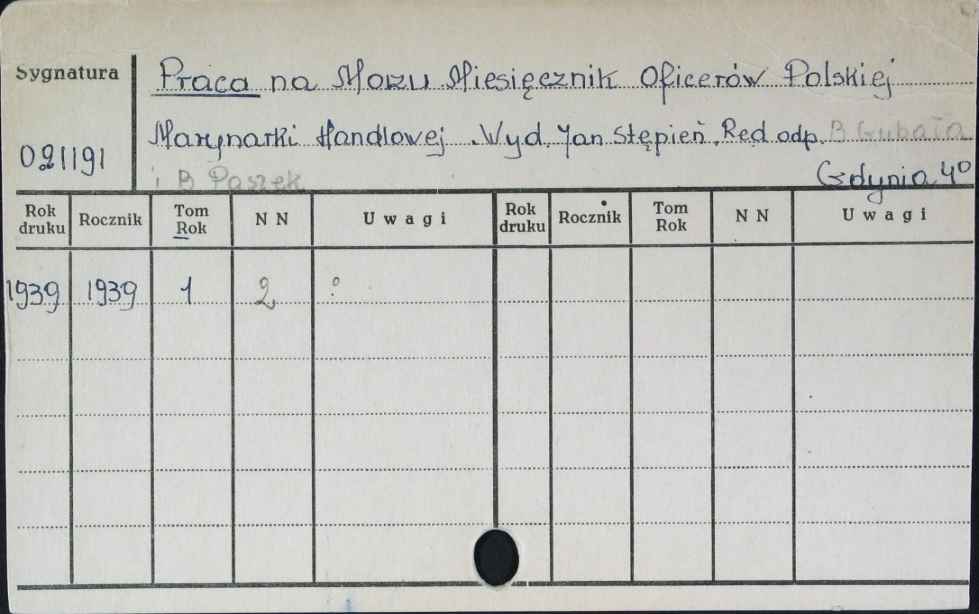 Sygnatura
Praca na Morzu Miesięcznik Oficerów Polskiej
Marynarki Handlowej. Wyd. Jan Stępień. Red. odp. B Gubała
021191
i B Paszek
Gdynia 4°
Rok druku Rocznik Tom Rok NN Uwagi Rok druku Rocznik Tom Rok NN Uwagi
1939 1939 1 2 °